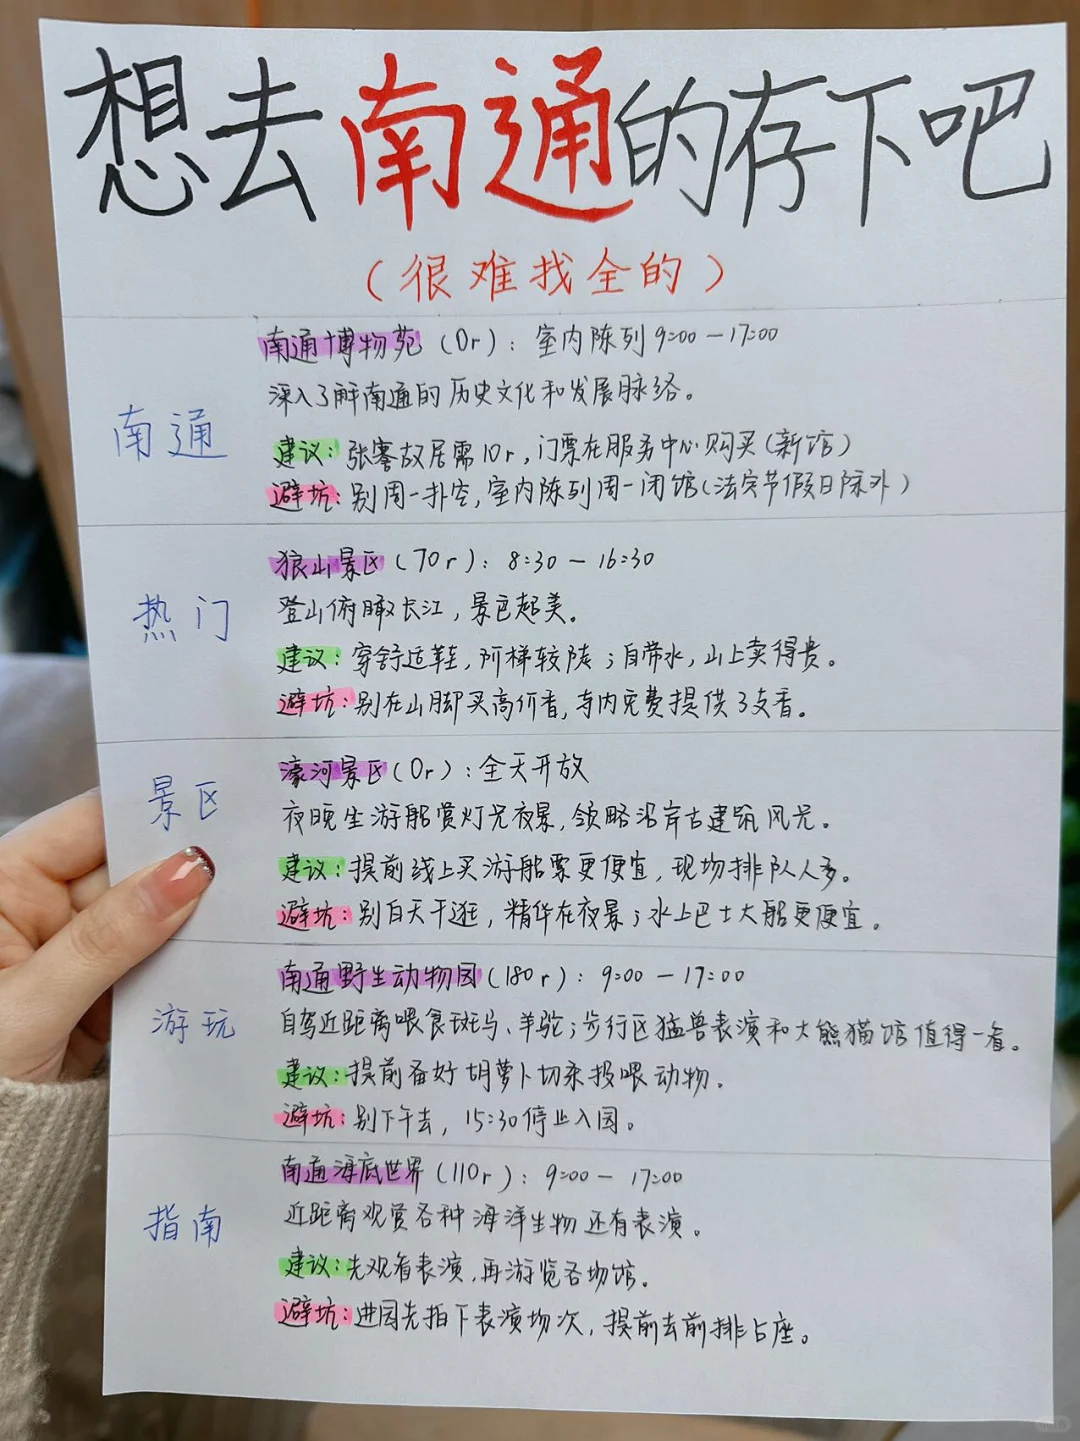 想去南通的存下吧
(很难找全的)
南通
南通博物苑(0r): 室内陈列9:00—17:00
深入了解南通的历史文化和发展脉络。
建议: 张謇故居需10r, 门票在服务中心购买(新馆)
避坑: 别周一扑空, 室内陈列周一闭馆(法定节假日除外)
热门
狼山景区(70r): 8:30—16:30
登山俯瞰长江, 景色超美。
建议: 穿舒适鞋, 阶梯较陡; 自带水, 山上卖得贵。
避坑: 别在山脚买高价香, 寺内免费提供3支香。
景区
濠河景区(0r): 全天开放
夜晚坐游船赏灯光夜景, 领略沿岸古建筑风光。
建议: 提前线上买游船票更便宜, 现场排队人多。
避坑: 别白天干逛, 精华在夜景; 水上巴士大船更便宜。
游玩
南通野生动物园(180r): 9:00—17:00
自驾近距离喂食斑马、羊驼; 步行区猛兽表演和大熊猫馆值得一看。
建议: 提前备好胡萝卜切条投喂动物。
避坑: 别下午去, 15:30停止入园。
指南
南通海底世界(110r): 9:00—17:00
近距离观赏各种海洋生物还有表演。
建议: 先观看表演, 再游览各场馆。
避坑: 进园先拍下表演场次, 提前去前排占座。